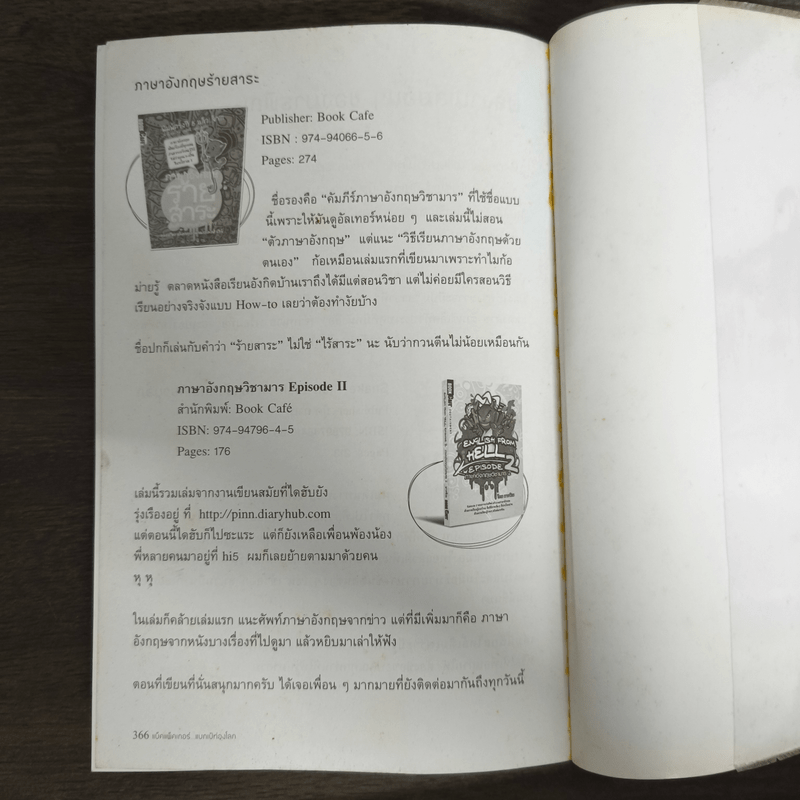 ภาษาอังกฤษร้ายสาระ
Publisher: Book Cafe
ISBN : 974-94066-5-6
Pages: 274
ร้าย
สาระ
ชื่อรองคือ “คัมภีร์ภาษาอังกฤษวิชามาร” ที่ใช้ชื่อแบบ
นี้เพราะให้มันดูอัลเทอร์หน่อย ๆ และเล่มนี้ไม่สอน
“ตัวภาษาอังกฤษ” แต่แนะ “วิธีเรียนภาษาอังกฤษด้วย
ตนเอง” ก้อเหมือนเล่มแรกที่เขียนมาเพราะทำไมก้อ
ม่ายรู้ ตลาดหนังสือเรียนอังกิดบ้านเราถึงได้มีแต่สอนวิชา แต่ไม่ค่อยมีใครสอนวิธี
เรียนอย่างจริงจังแบบ How-to เลยว่าต้องทำงัยบ้าง
ชื่อปกก็เล่นกับคำว่า “ร้ายสาระ” ไม่ใช่ “ไร้สาระ” นะ นับว่ากวนตีนไม่น้อยเหมือนกัน
ภาษาอังกฤษวิชามาร Episode II
สำนักพิมพ์: Book Café
ISBN: 974-94796-4-5
Pages: 176
ENGLISH FROM
HELL
EPISODE 2
เล่มนี้รวมเล่มจากงานเขียนสมัยที่ไดฮับยัง
รุ่งเรืองอยู่ ที่ http://pinn.diaryhub.com
แต่ตอนนี้ไดฮับก็ไปซะแระ แต่ก็ยังเหลือเพื่อนพ้องน้อง
พี่หลายคนมาอยู่ที่ hi5 ผมก็เลยย้ายตามมาด้วยคน
หุ หุ
ในเล่มก็คล้ายเล่มแรก แนะศัพท์ภาษาอังกฤษจากข่าว แต่ที่มีเพิ่มมาก็คือ ภาษา
อังกฤษจากหนังบางเรื่องที่ไปดูมา แล้วหยิบมาเล่าให้ฟัง
ตอนที่เขียนที่นั่นสนุกมากครับ ได้เจอเพื่อน ๆ มากมายที่ยังติดต่อมากันถึงทุกวันนี้
366 แบ็คแพ็คเกอร์ แบกเป้ท่องโลก